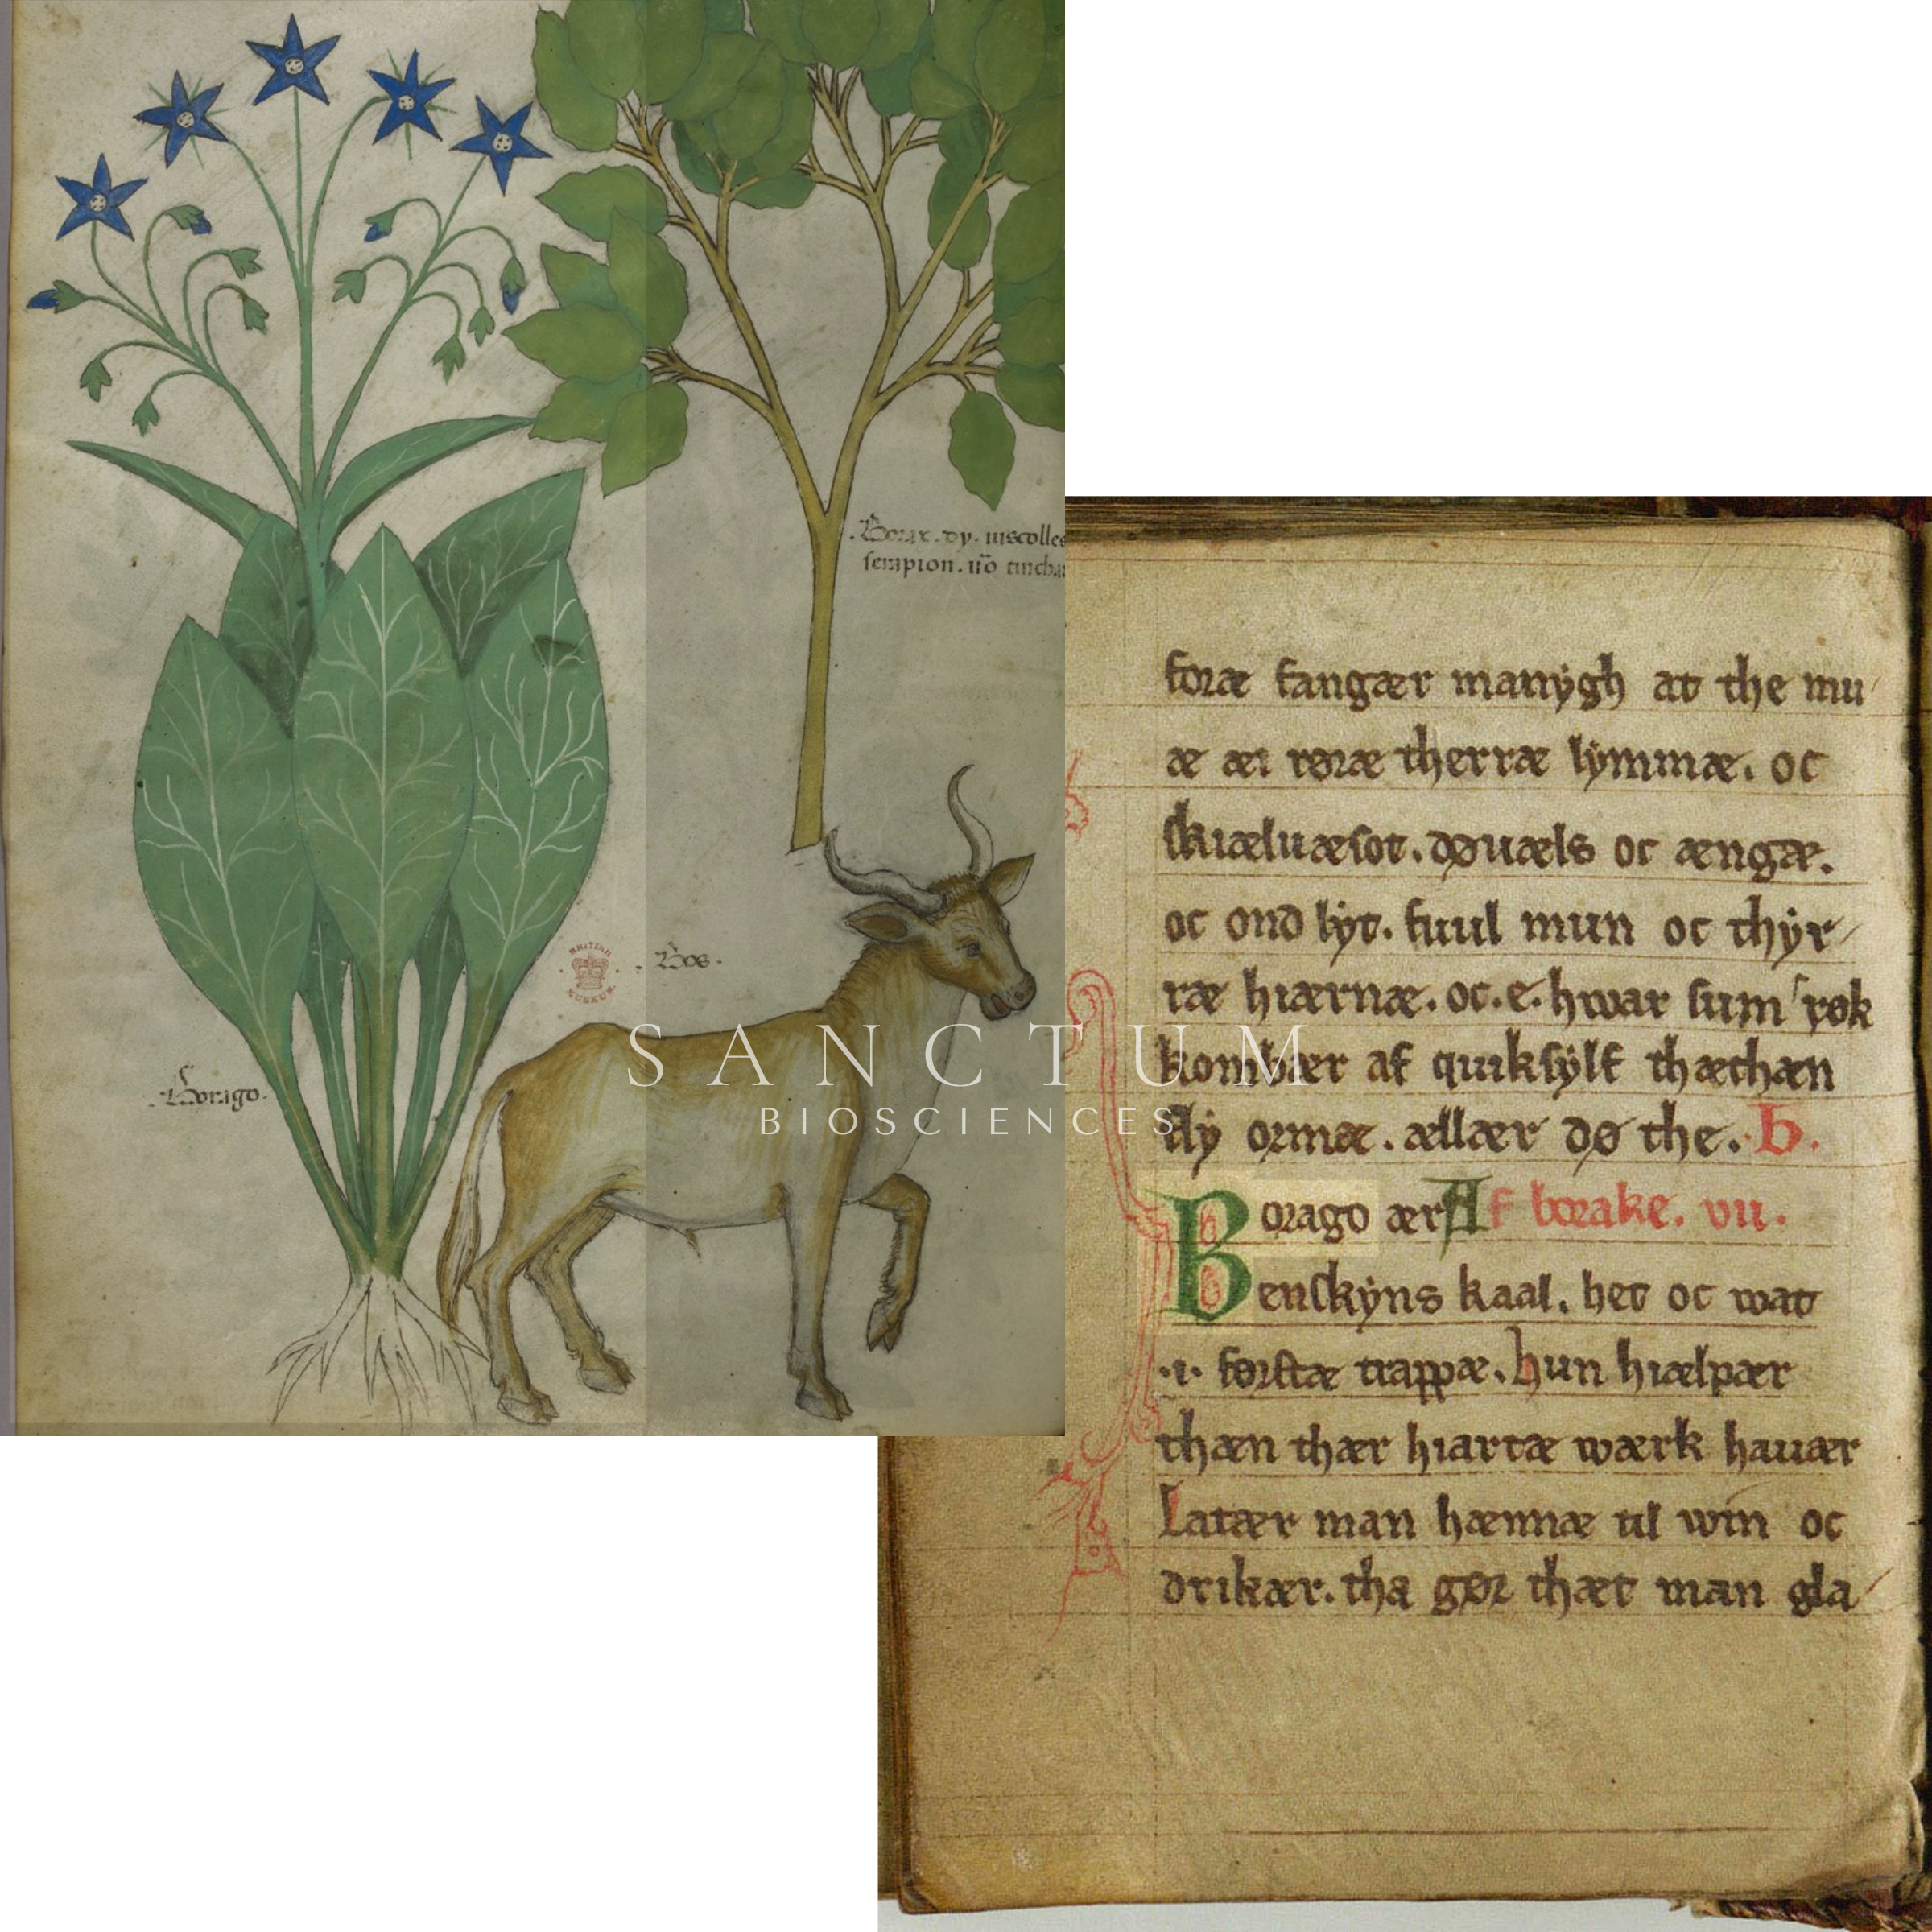 .Borax. dy. uiscolles
serapion. iiō tincha
BRITISH MUSEUM
.Bos.
SANCTUM
BIOSCIENCES
.Borago.
foræ fangær manÿgh at the mu
æ æi røræ therræ lÿmmæ. oc
skiæluæsot. døuæls oc ængæ.
oc ond lÿt. fuul mun oc thÿr
ræ hiærnæ. oc. e. hwar sum røk
kombær af quiksÿlf thæthæn
flÿ ormæ. ællær dø the. B.
Borago ær Af borake. vii.
enskÿns kaal. het oc wat
.i. førstæ trappæ. hun hiælpær
thæn thær hiartæ wærk hauær
Latær man hænnæ til win oc
drikær. tha gør thæt man gla